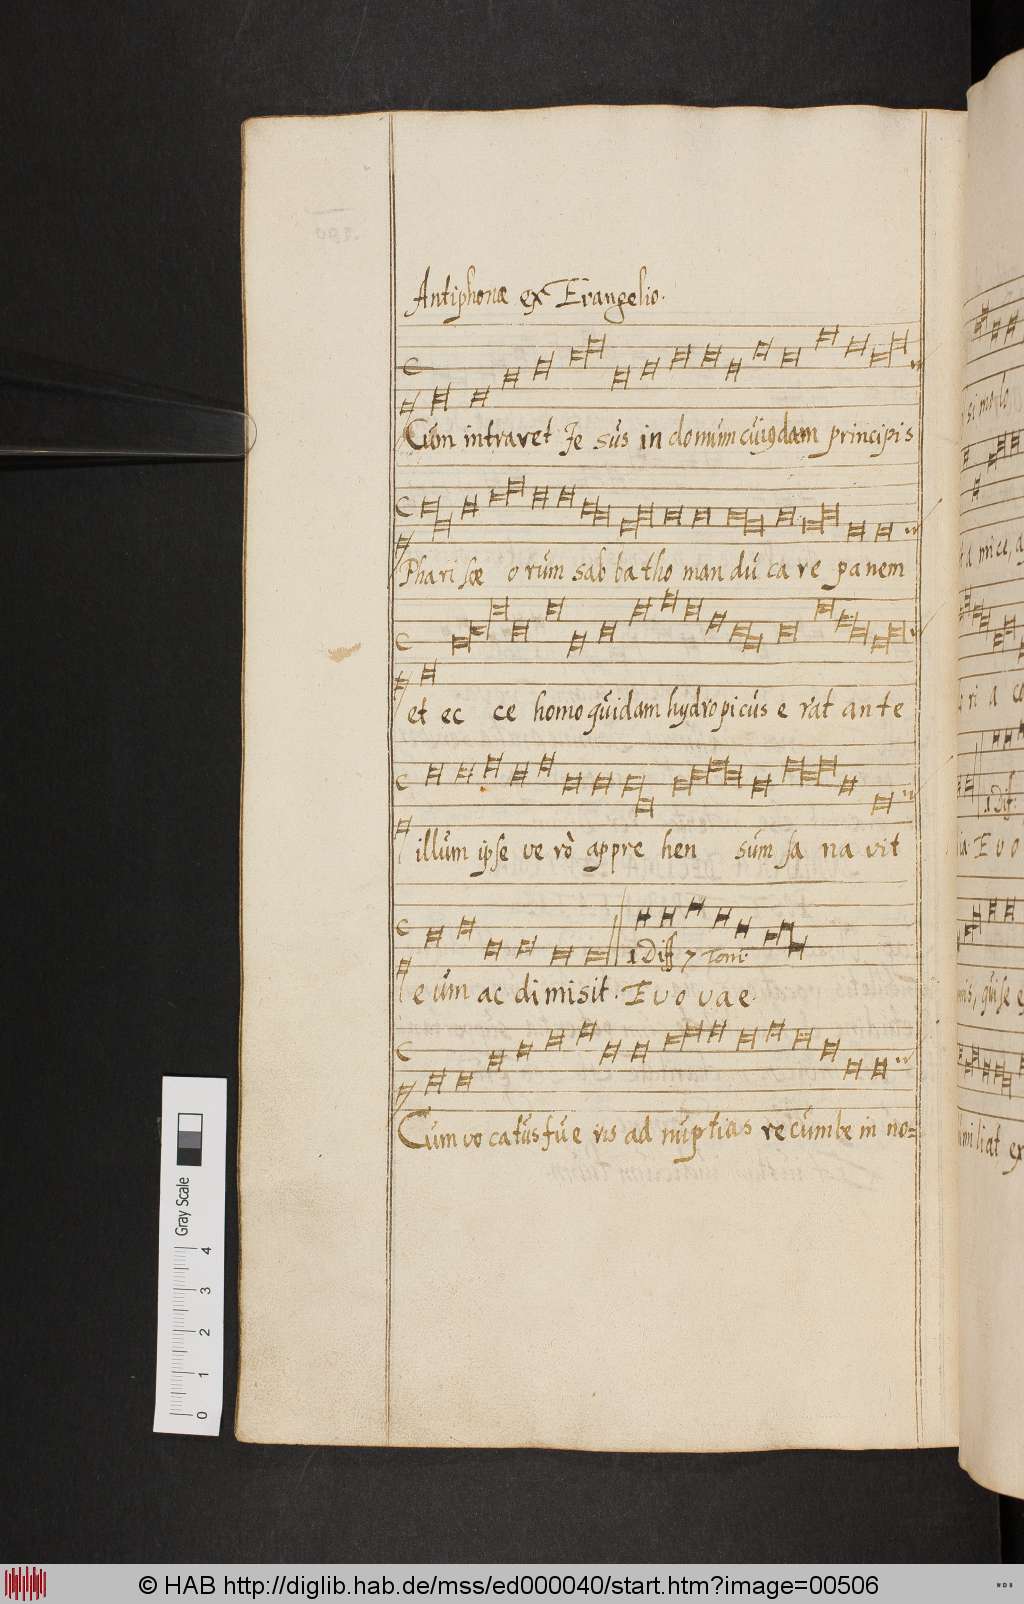 Antiphonæ ex Evangelio.
Cum intravet Je sus in domum cuiqdam principis
Phari sæ o rum sab ba tho man du ca re panem
et ec ce homo quidam hydropicus e rat an te
illum ipse ve rò appre hen sum sa na vit
e um ac dimisit. E v o v a e.
1 Diff 7 Toni.
Cum vo catus fu e ris ad nuptias re cumbe in no=
Gray Scale
4
3
2
1
0
© HAB http://diglib.hab.de/mss/ed000040/start.htm?image=00506